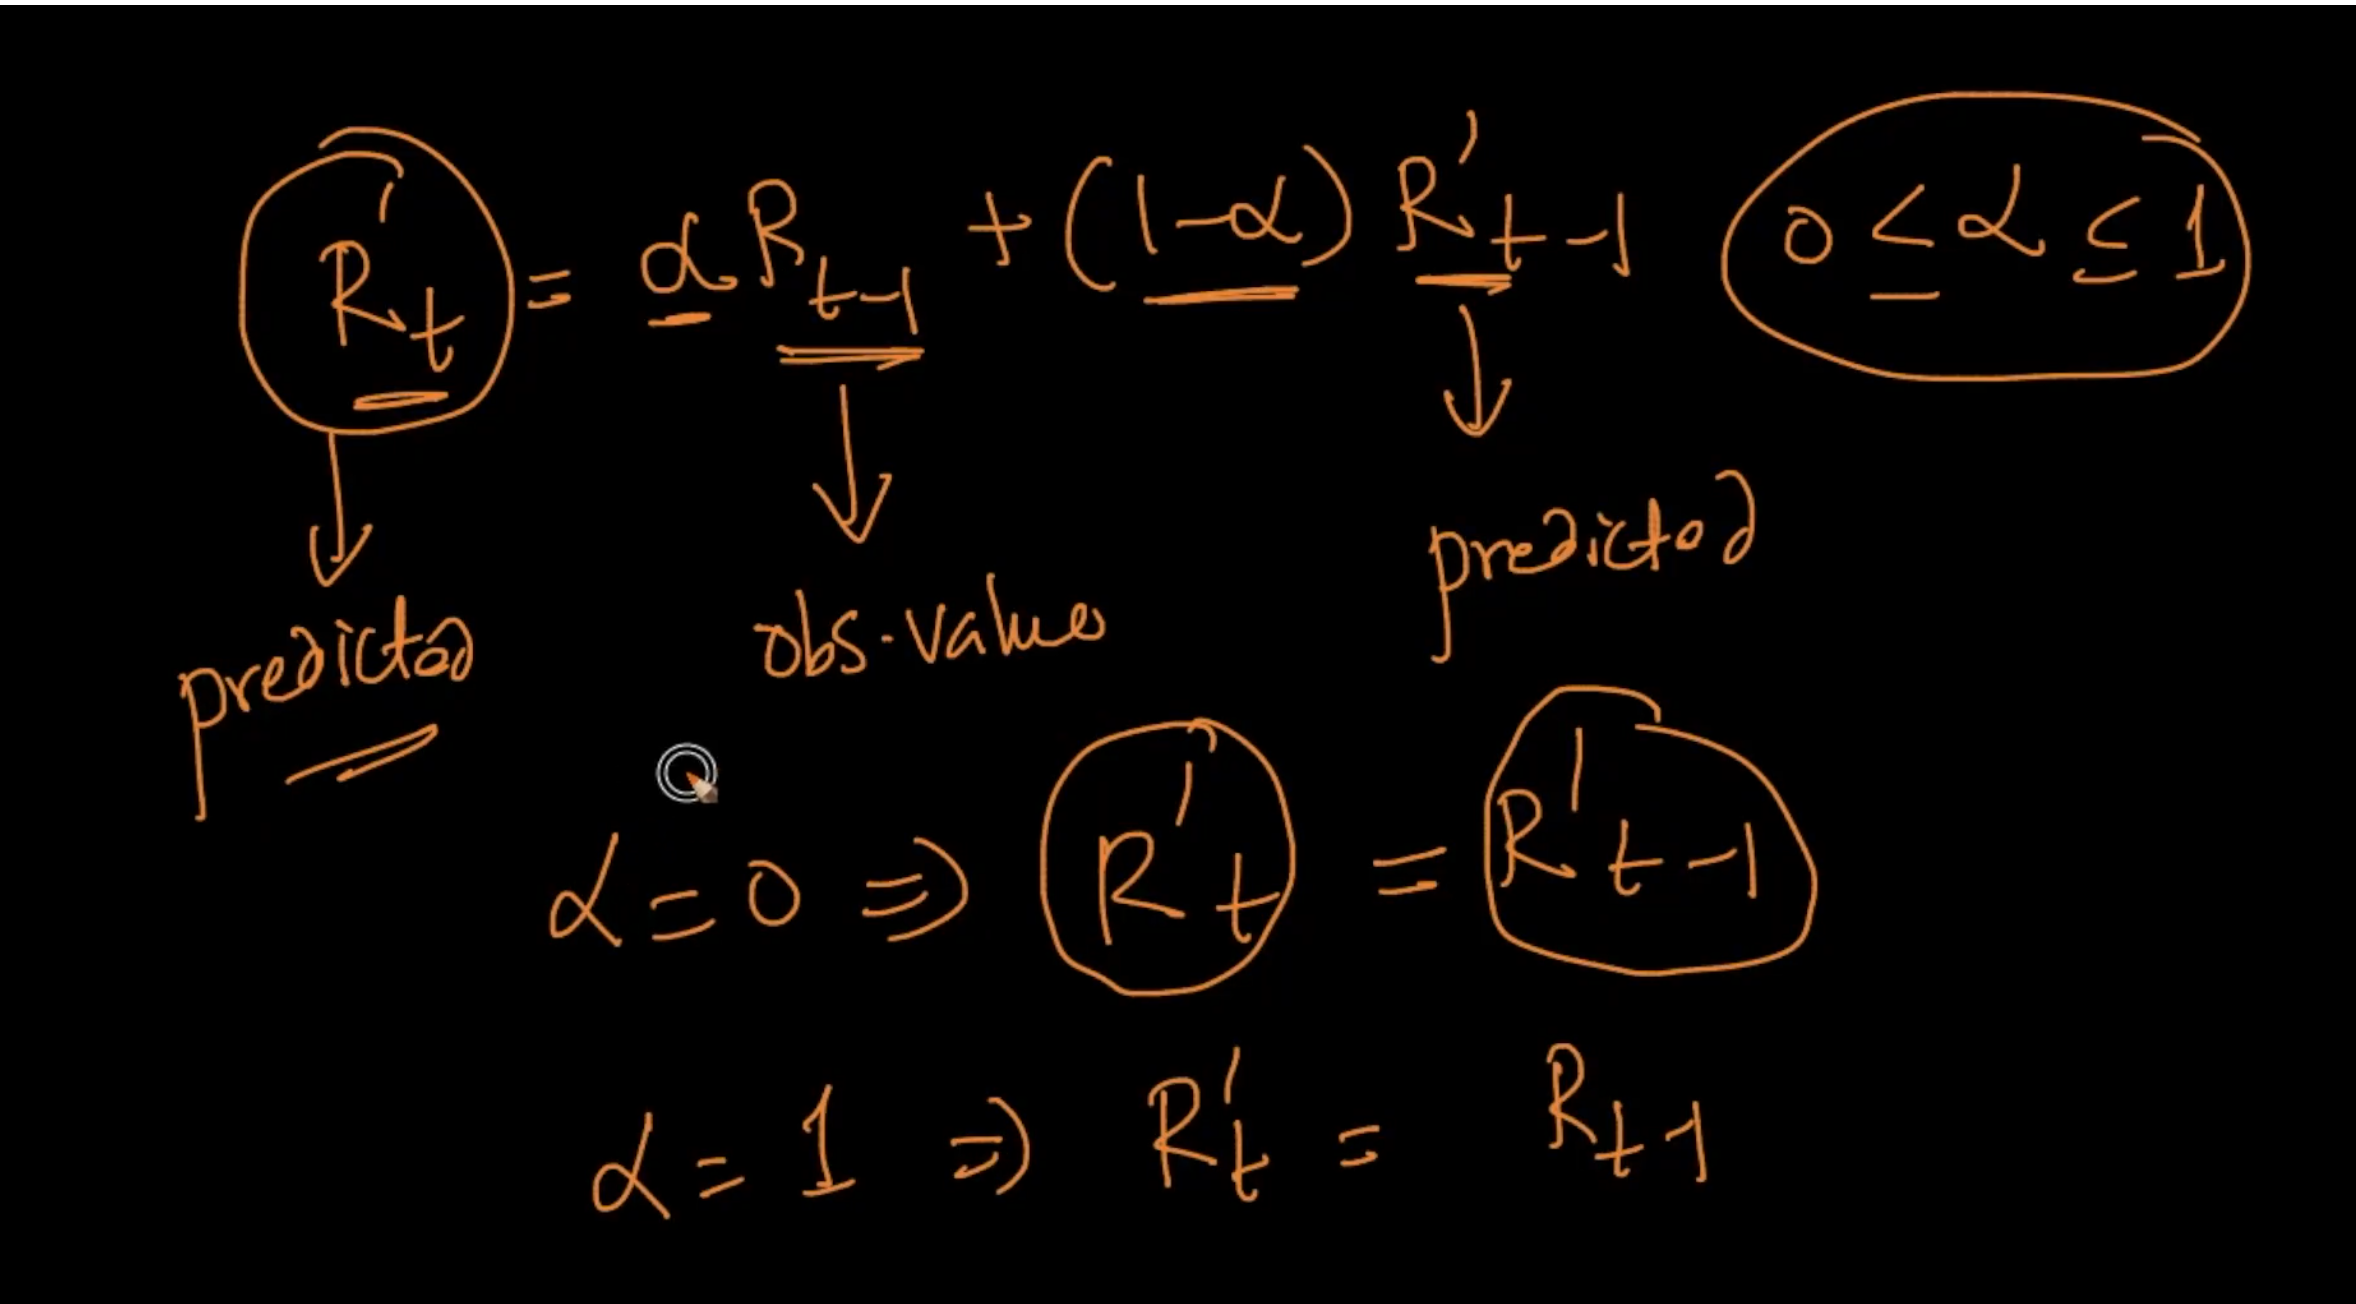 R't = αRt-1 + (1-α) R't-1 0 ≤ α ≤ 1
predicted
obs.value
predicted
α = 0 ⇒ R't = R't-1
α = 1 ⇒ R't = Rt-1